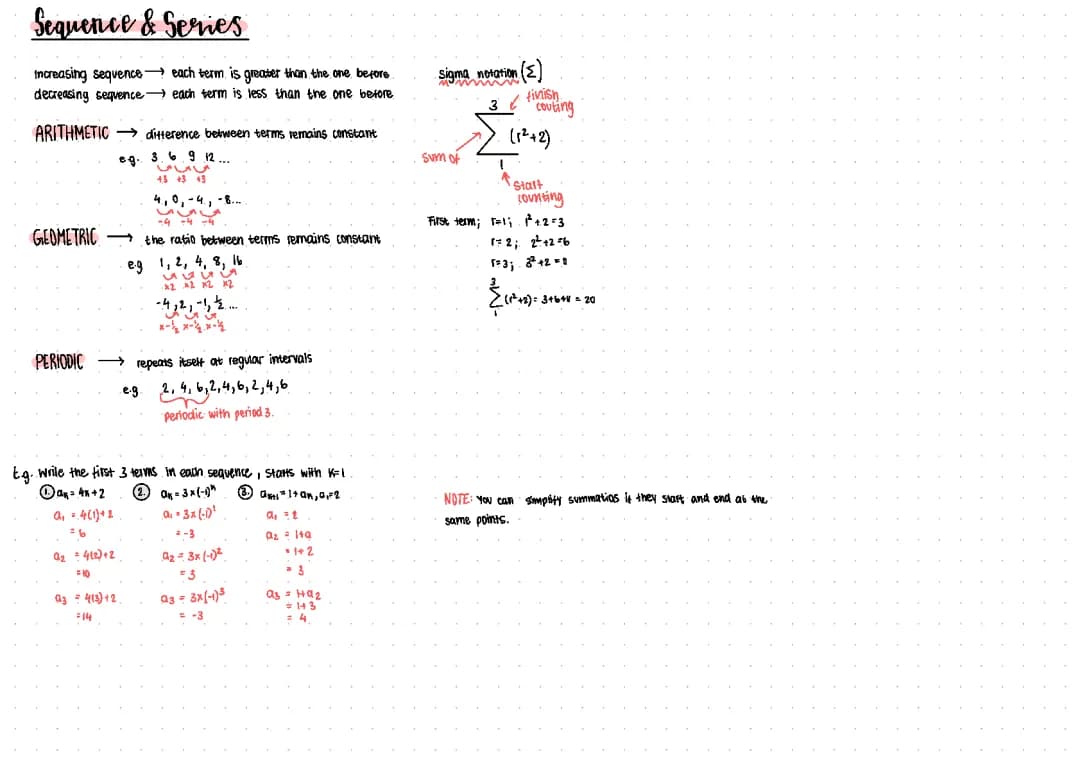 Sequence & Series
Increasing sequence → each term is greater than the one before
decreasing sequence → each term is less than the one before
ARITHMETIC → difference between terms remains constant
e.g. 3 6 9 12 ...
+3 +3 +3
4, 0, -4, -8...
-4 -4 -4
GEOMETRIC → the ratio between terms remains constant
e.g 1, 2, 4, 8, 16
x2 x2 x2 x2
-4, 2, -1, ½ ...
x-½ x-½ x-½
PERIODIC → repeats itself at regular intervals
e.g. 2, 4, 6, 2, 4, 6, 2, 4, 6
periodic with period 3.
E.g. Write the first 3 terms in each sequence, starts with K=1
1. aₖ = 4k+2
a₁ = 4(1)+2
= 6
a₂ = 4(2)+2
= 10
a₃ = 4(3)+2
= 14
2. aₖ = 3×(-1)ᵏ
a₁ = 3×(-1)¹
= -3
a₂ = 3×(-1)²
= 3
a₃ = 3×(-1)³
= -3
3. aₙ₊₁ = 1+aₙ, a₁=2
a₁ = 2
a₂ = 1+a
= 1+2
= 3
a₃ = 1+a₂
= 1+3
= 4
sigma notation (Σ)
3 finish
couting
Σ (r²+2)
sum of
1
start
counting
First term; r=1; 1²+2=3
r=2; 2²+2=6
r=3; 3²+2=
3
Σ(r²+2) = 3+6+11 = 20
1
NOTE: You can simplify summatios if they start and end at the
same points.